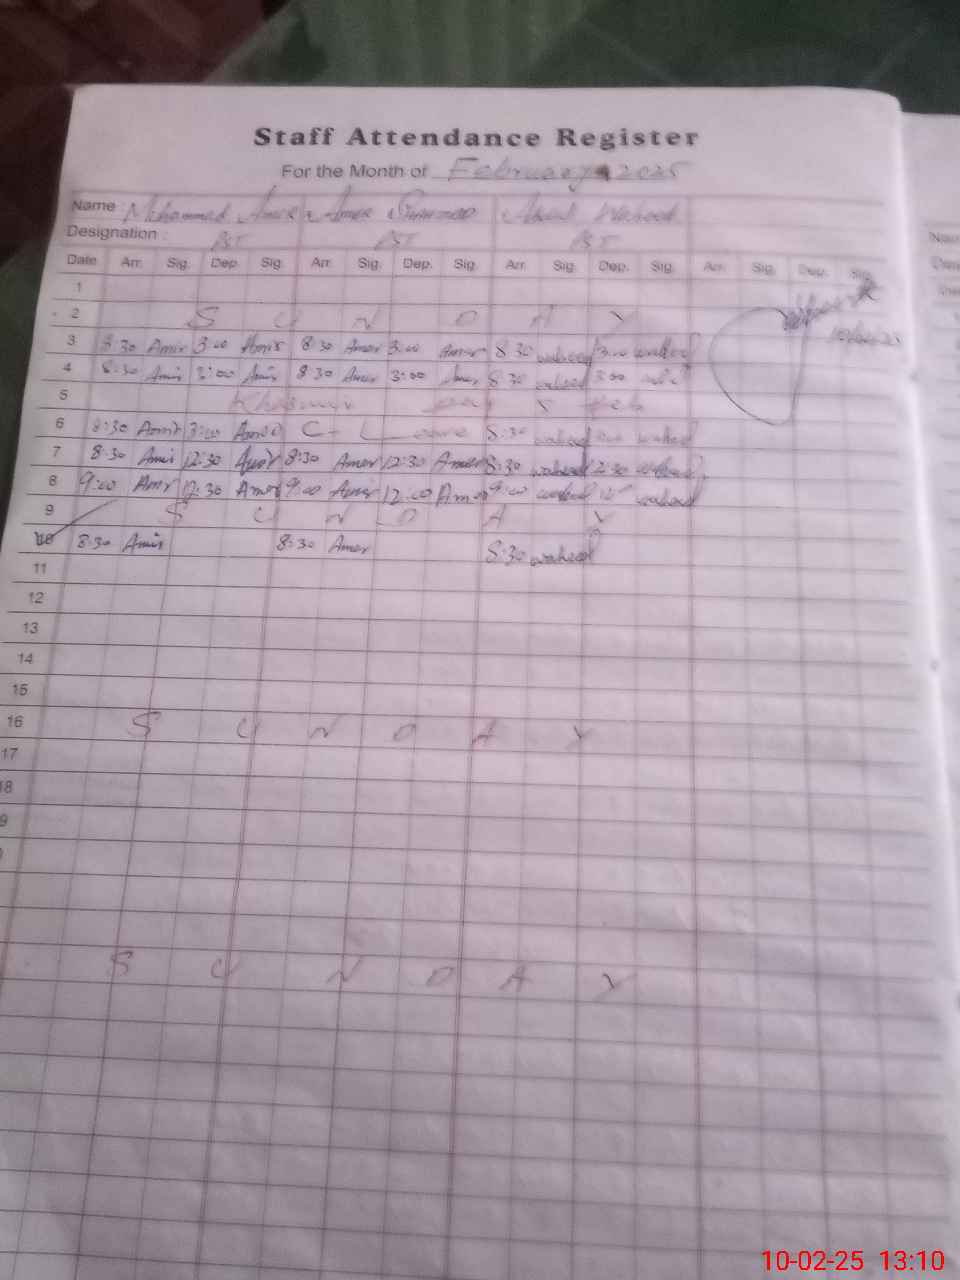 Staff Attendance Register
For the Month of February 2025
Name : Mohammad Amir Amer Abdul Waheed
Designation : PST PST PST
Date Arr. Sig. Dep. Sig. Arr. Sig. Dep. Sig. Arr. Sig. Dep. Sig. Arr. Sig. Dep. Sig.
1
2 S U N D A Y
3 8:30 Amir 3:00 Amir 8:30 Amer 3:00 Amer 8:30 waheed 3:00 waheed
4 8:30 Amir 3:00 Amir 8:30 Amer 3:00 Amer 8:30 waheed 3:00
5 Kashmir Day 5 Feb
6 8:30 Amir 3:00 Amir C- Leave 8:30 waheed waheed
7 8:30 Amir 12:30 Amir 8:30 Amer 12:30 Amer 8:30 waheed 12:30 waheed
8 9:00 Amir 12:30 Amir 9:00 Amer 12:00 Amer 9:00 waheed waheed
9 S U N D A Y
10 8:30 Amir 8:30 Amer 8:30 waheed
11
12
13
14
15
16 S U N D A Y
17
18
9
S U N D A Y
10-02-25 13:10